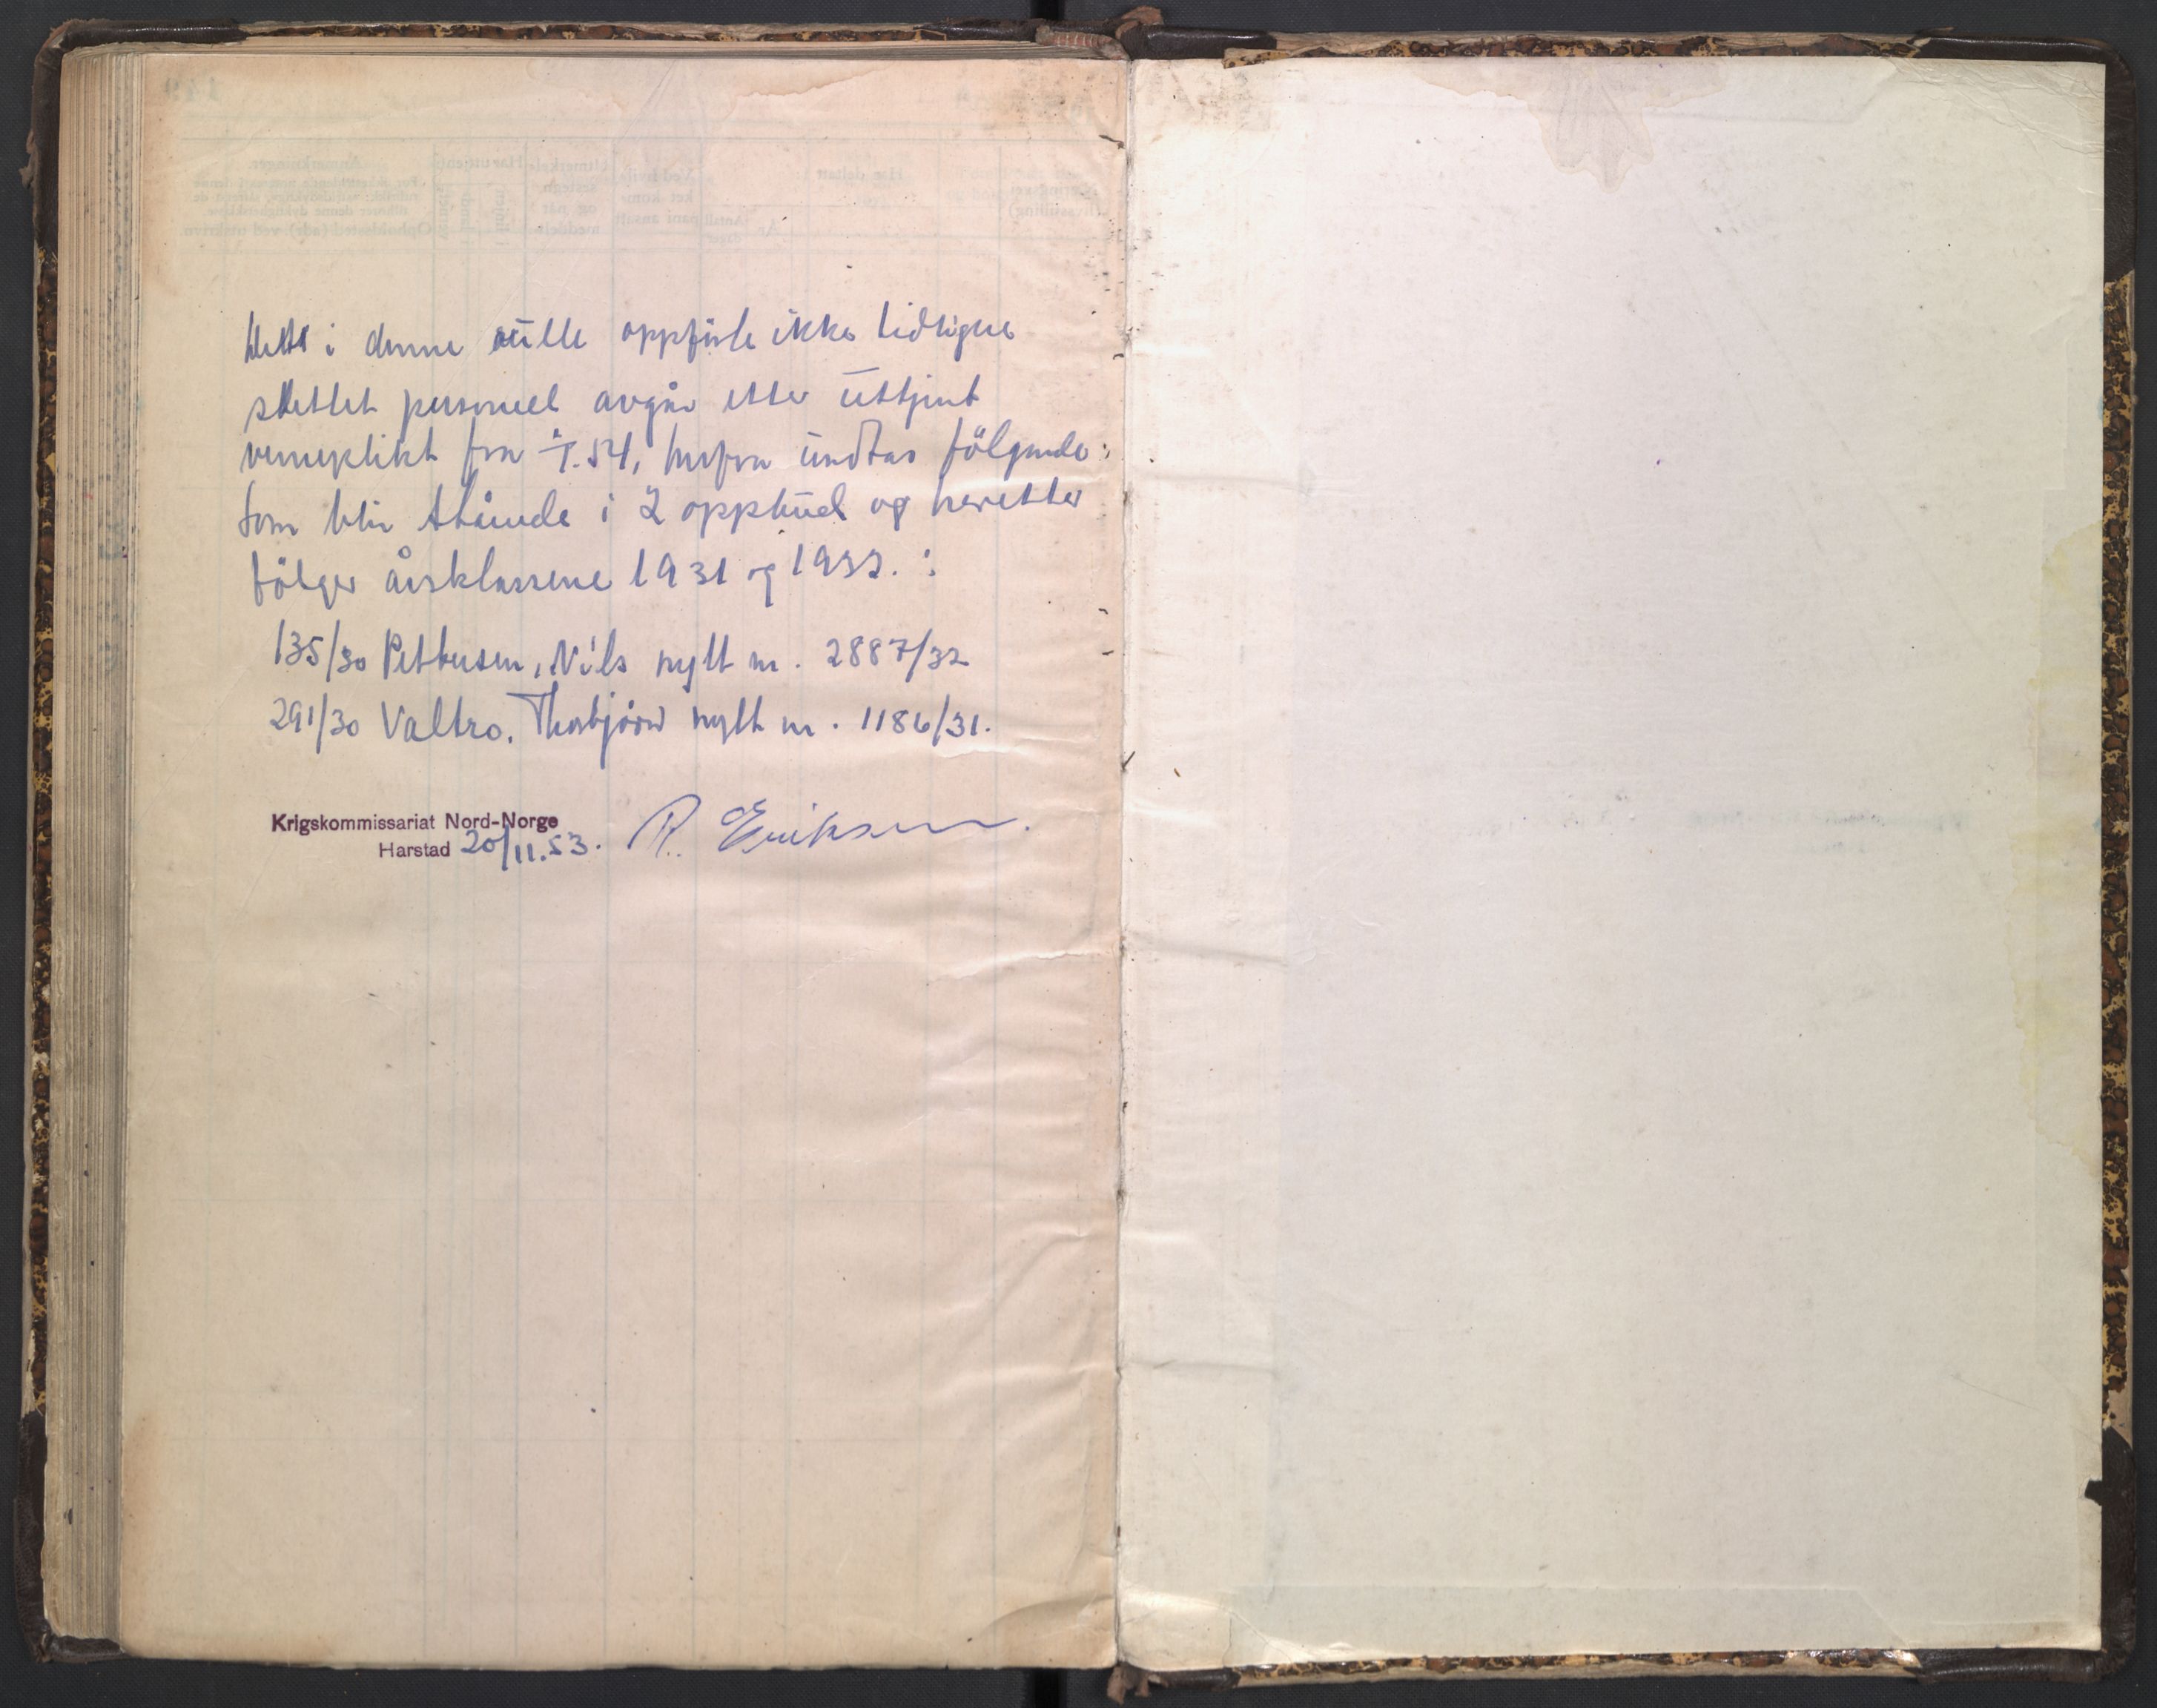 i denne rülle oppförte ikke tidligere
slettet personell avgår etter üttjent
verneplikt fra 1/1.54, herfra ündtas fölgende:
som blir stående i 2 oppbüd og heretter
fölger årsklassene 1931 og 1932. :
135/30 Pettersen, Nils nytt nr. 2887/32
291/30 Valtro. Thorbjörn nytt nr. 1186/31.
Krigskommissariat Nord-Norge
Harstad 20/11.53. R. Eriksen.